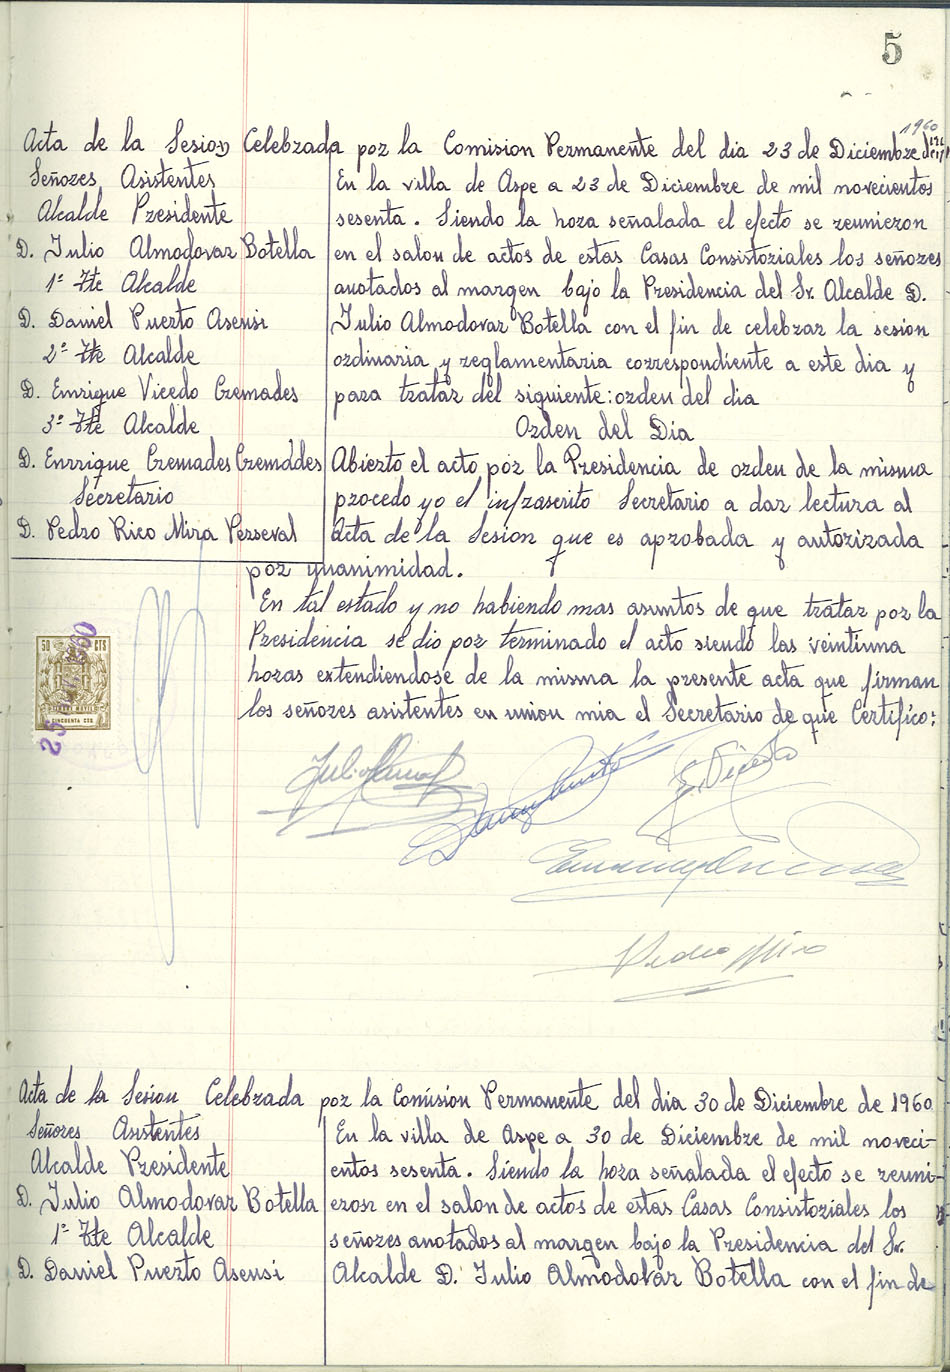 5
1960
Acta de la Sesion Celebrada por la Comision Permanente del dia 23 de Diciembre de
Señores Asistentes
Alcalde Presidente
D. Julio Almodovar Botella
1º Tte Alcalde
D. Daniel Puerto Asensi
2º Tte Alcalde
D. Enrique Vicedo Cremades
3º Tte Alcalde
D. Enrrique Cremades Cremades
Secretario
D. Pedro Rico Mira Perseval
En la villa de Aspe a 23 de Diciembre de mil novecientos
sesenta. Siendo la hora señalada el efecto se reunieron
en el salon de actos de estas Casas Consistoriales los señores
anotados al margen bajo la Presidencia del Sr. Alcalde D.
Julio Almodovar Botella con el fin de celebrar la sesion
ordinaria y reglamentaria correspondiente a este dia y
para tratar del siguiente: orden del dia
Orden del Dia
Abierto el acto por la Presidencia de orden de la misma
procedo yo el infrascrito Secretario a dar lectura al
Acta de la Sesion que es aprobada y autorizada
por unanimidad.
En tal estado y no habiendo mas asuntos de que tratar por la
Presidencia se dio por terminado el acto siendo las veintiuna
horas extendiendose de la misma la presente acta que firman
los señores asistentes en union mia el Secretario de que Certifico:
50 CTS
CINCUENTA CTS.
E. Vicedo
Pedro Mira
Acta de la Sesion Celebrada por la Comision Permanente del dia 30 de Diciembre de 1960
Señores Asistentes
Alcalde Presidente
D. Julio Almodovar Botella
1º Tte Alcalde
D. Daniel Puerto Asensi
En la villa de Aspe a 30 de Diciembre de mil noveci-
entos sesenta. Siendo la hora señalada el efecto se reuni-
eron en el salon de actos de estas Casas Consistoriales los
señores anotados al margen bajo la Presidencia del Sr.
Alcalde D. Julio Almodovar Botella con el fin de